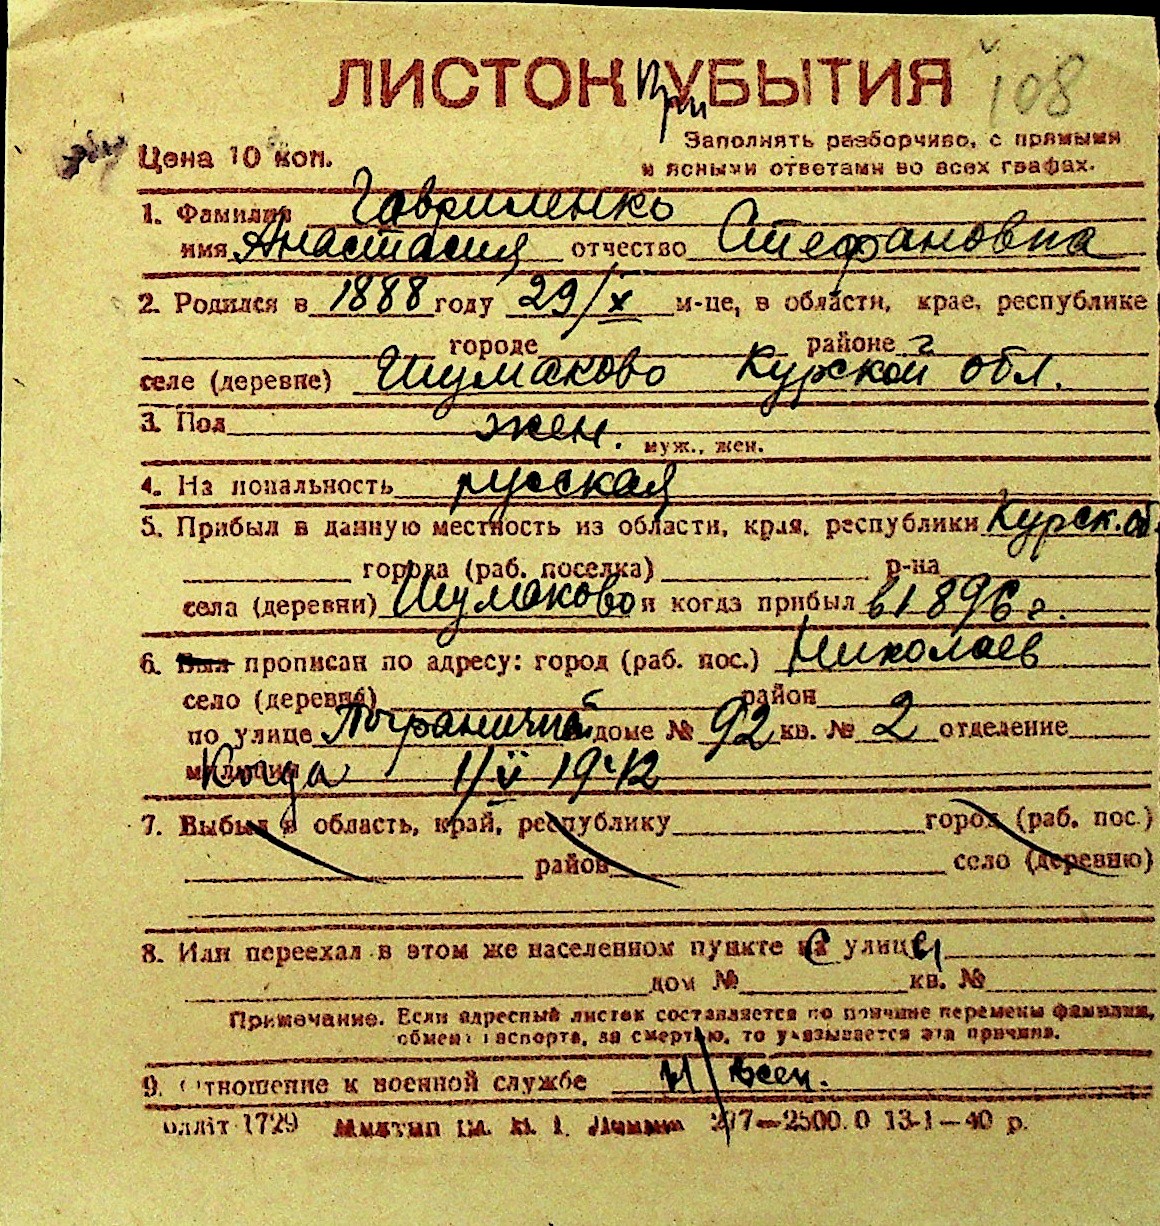 ЛИСТОК При УБЫТИЯ 108
Заполнять разборчиво, с прямыми
Цена 10 коп.
и ясными ответами во всех графах.
1. Фамилия Гавриленко
имя Анастасия отчество Стефановна
2. Родился в 1888 году 29/X м-це, в области, крае, республике
городе районе
селе (деревне) Шумаково Курской обл.
3. Пол жен.
муж., жен.
4. На иональность русская
5. Прибыл в данную местность из области, края, республики Курск. об.
города (раб. поселка) р-на
села (деревни) Шумаково и когда прибыл в 1896 г.
6. Был прописан по адресу: город (раб. пос.) Николаев
село (деревня) район
по улице Пограничной доме № 92 кв. № 2 отделение
милиции Когда 1/V 1942
7. Выбыл в область, край, республику город (раб. пос.)
район село (деревню)
8. Или переехал в этом же населенном пункте С улицы
дом № кв. №
Примечание. Если адресный листок составляется по причине перемены фамилии,
обмена паспорта, за смертью, то указывается эта причина.
9. Отношение к военной службе
1729 2500. 0 13-1-40 р.